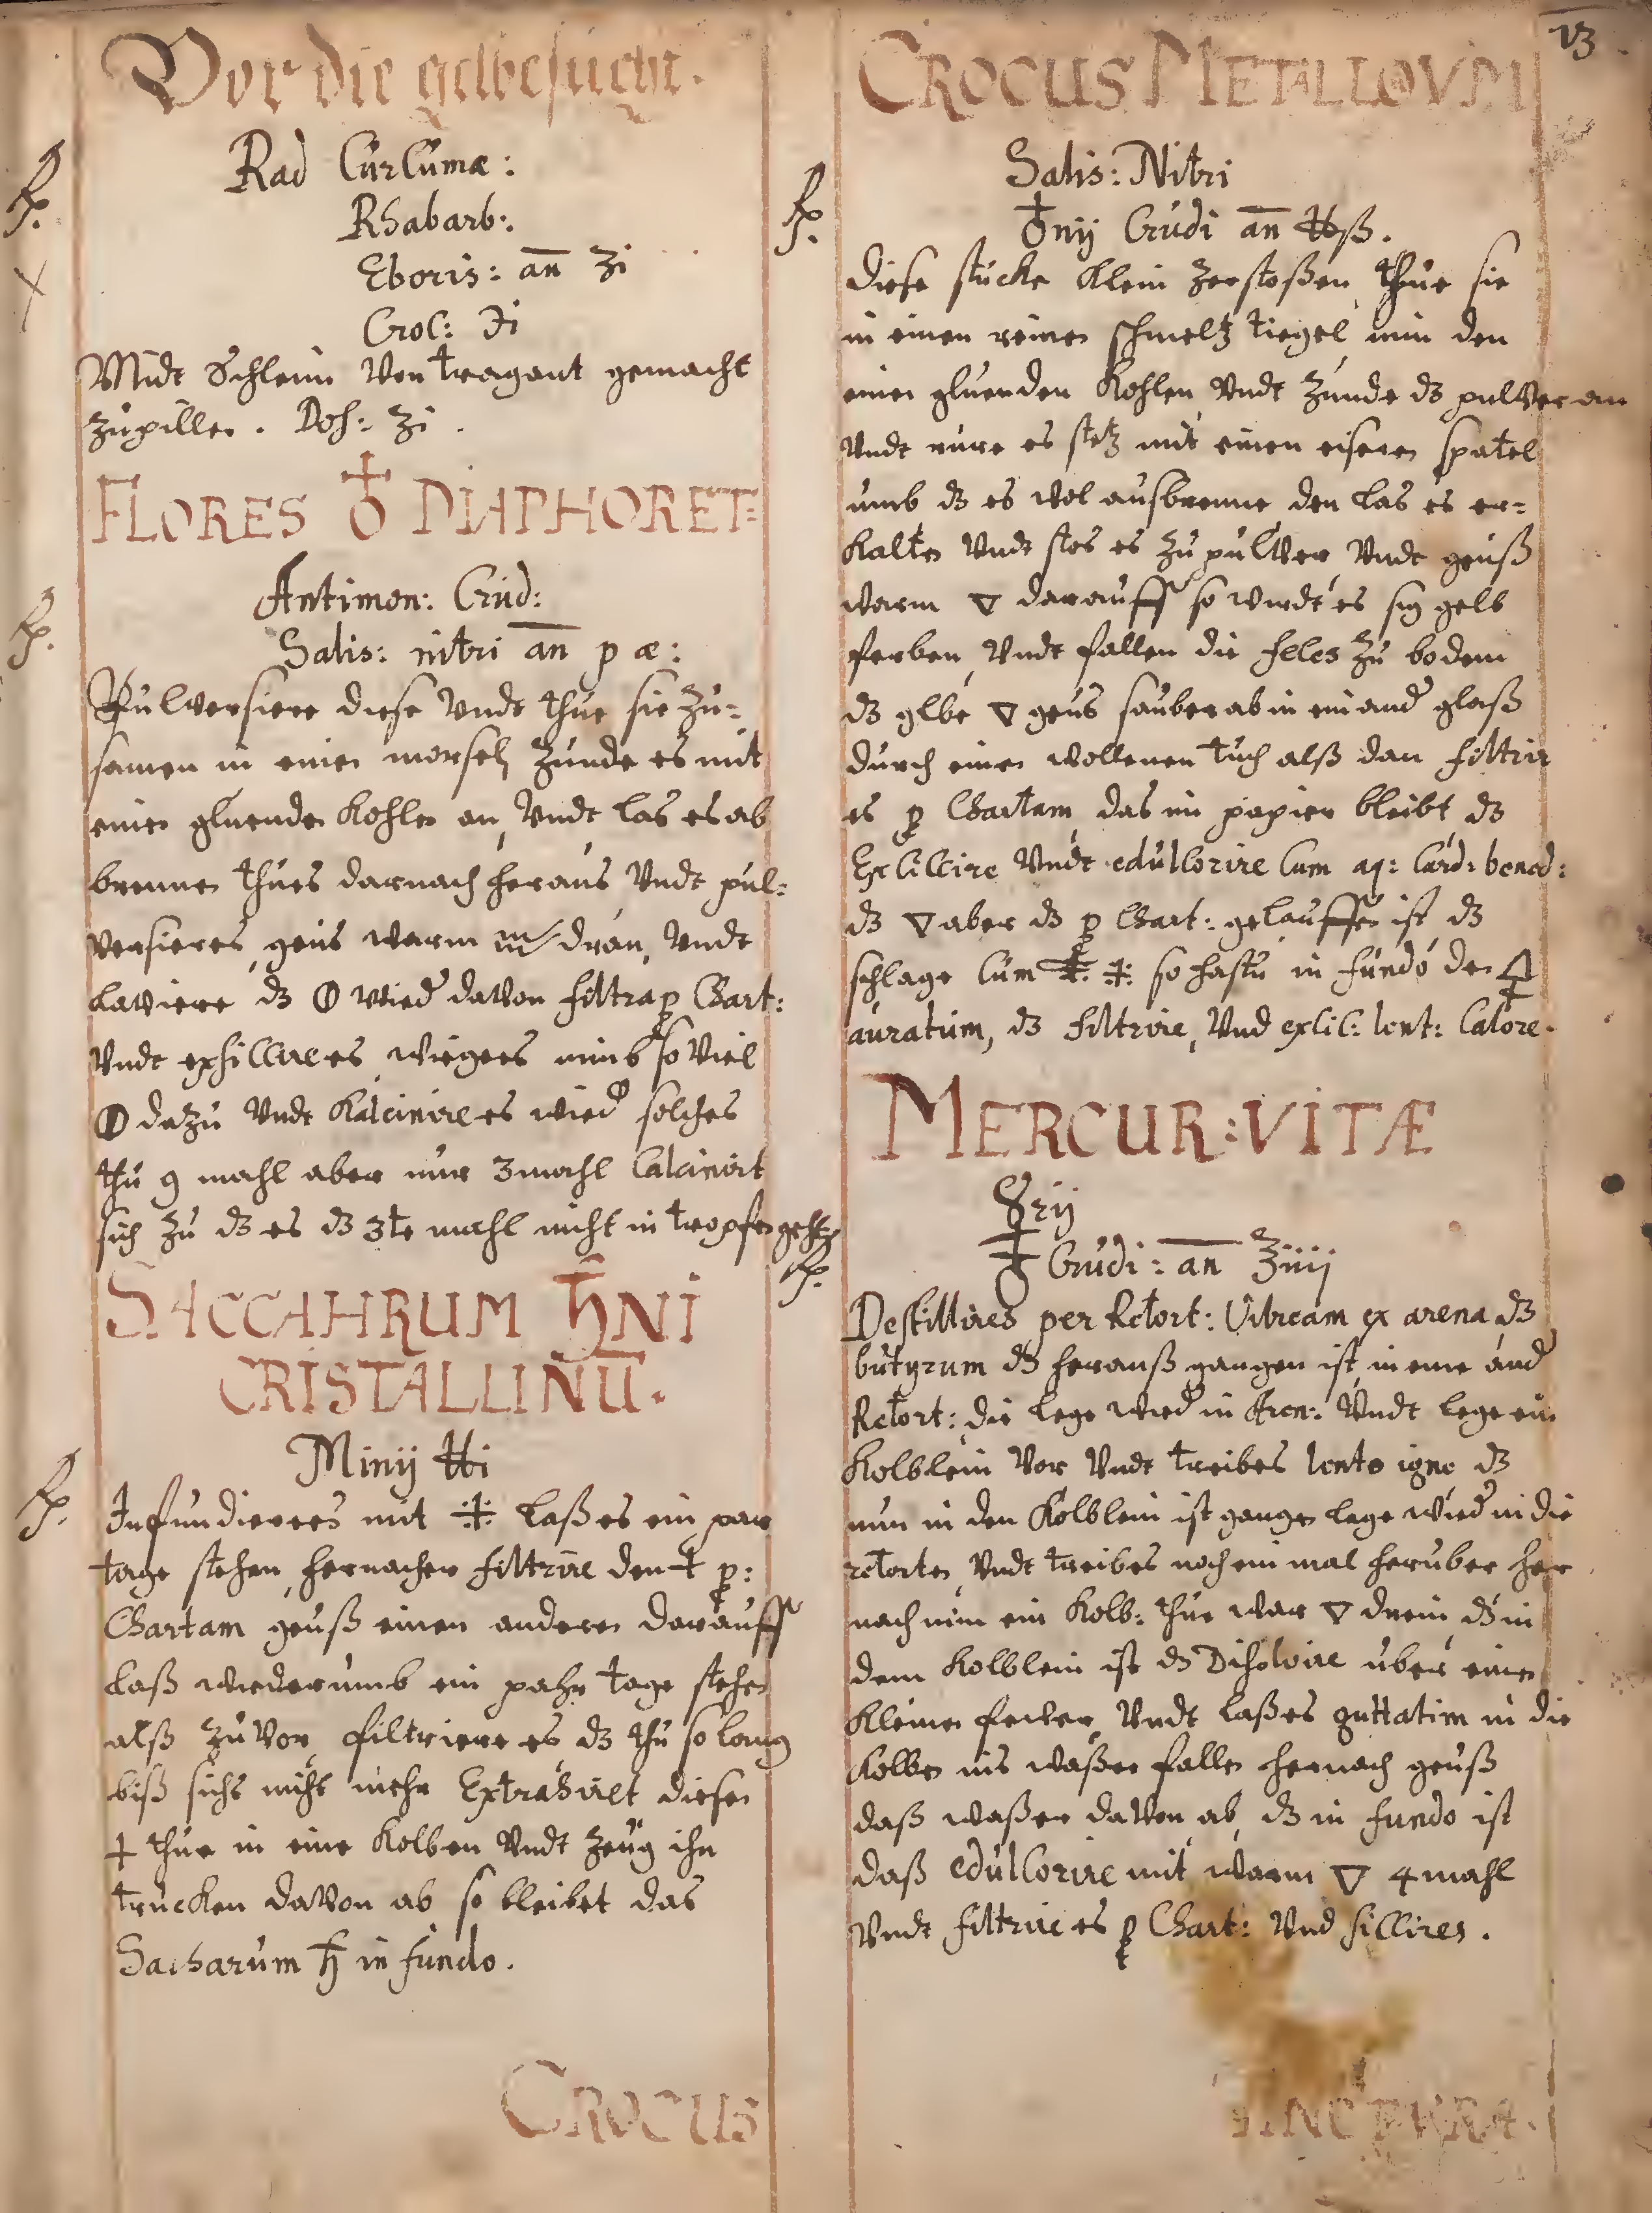 Vor die gelbesucht.
℞.
Rad Curcumæ:
Rhabarb:.
Eboris: an̅ ʒi
Croc: ℈i
Midt Schleim Von tragant gemacht
zu pillen. Dos: ʒi.
FLORES ♁ DIAPHORET=
℞.
Antimon: Crud:
Salis: nitri an̅ p æ:
Pulversiere diese Vndt thue sie zu=
samen in einen morsel, zunde es mit
einer gluenden Kohlen an, Vndt las es ab
brennen thues darnach heraus Vndt pul=
versieres, geus warm dran, Vndt
laviere dz wied davon filtra p Chart:
Vndt exsiccire es wieges nimb so viel
dazu Vndt Kalcinire es wied solches
thu 9 mahl aber nur 3mahl Calcinirt
sich zu dz es dz 3te mahl nicht in tropfen gehet
SACCAHRUM ♄NI
CRISTALLINU̅.
℞.
Minij ℔i
Infundieres mit :🜊: laß es ein par
tage stehen, hernacher filtrire den 🜊 p:
Chartam geuß einen anderen darauff
laß wiederumb ein pahr tage stehen
alß zuvor filtriere es dz thu so lang
biß sichs nicht mehr Extrahirt diesen
🜊 thue in eine Kolben Vndt zeug ihn
trucken davon ab so bleibet das
Sacharum ♄ in fundo.
CROCUS
13.
CROCUS METALLOVM
℞.
Salis: Nitri
♁nij Crudi an̅ ℔ß.
Diese stucke Klein zerstoßen, thue sie
in einen reinen schmeltz tiegel nim den
einen gluenden Kohlen Vndt zunde dz pulver an
Vndt rure es stetz mit einen eiseren spatel
umb dz es wol ausbrenne den las es er=
kalten Vndt stos es zu pulver Vndt geuß
warm 🜄 darauff so wirdt es sig gelb
ferben, Vndt fallen die feles zu bodem
dz gelbe 🜄 geus sauber ab in ein and glaß
durch einen wollenen tuch alß dan filtrir
es p Chartam, das im papier bleibt dz
Exsiccire Vndt edulcorire Cum aq: Card: bened:
dz 🜄 aber dz p Chart: gelauffen ist dz
schlage Cum 🜊: so hastu in fundo den 🜍
auratum, dz filtrire, Vnd exsic: lent: Calore.
MERCUR: VITÆ
℞.
☿rij
♁ Crudi: an̅ ℥iiij
Destillires per Retort: Vitream ex arena dz
butyrum dz herauß gangen ist, in eine and
Retort: die lege wied in Aren: Vndt lege ein
Kolblein Vor Vndt treibes lento igne dz
nun in den Kolblein ist gangen lege wied in die
retorten, Vndt treibes noch ein mal heruber her
nach nim ein Kolb: thue war 🜄 drein, dz in
dem Kolblein ist dz Disolvire uber einen
Kleinen feuer Vndt laß es guttatim in die
Kolben ins waßer fallen hernach geuß
daß waßer davon ab, dz in fundo ist
daß edulcorire mit warm 🜄 4 mahl
Vndt filtrire es p Chart: Vnd siccires.
TINCTURA.